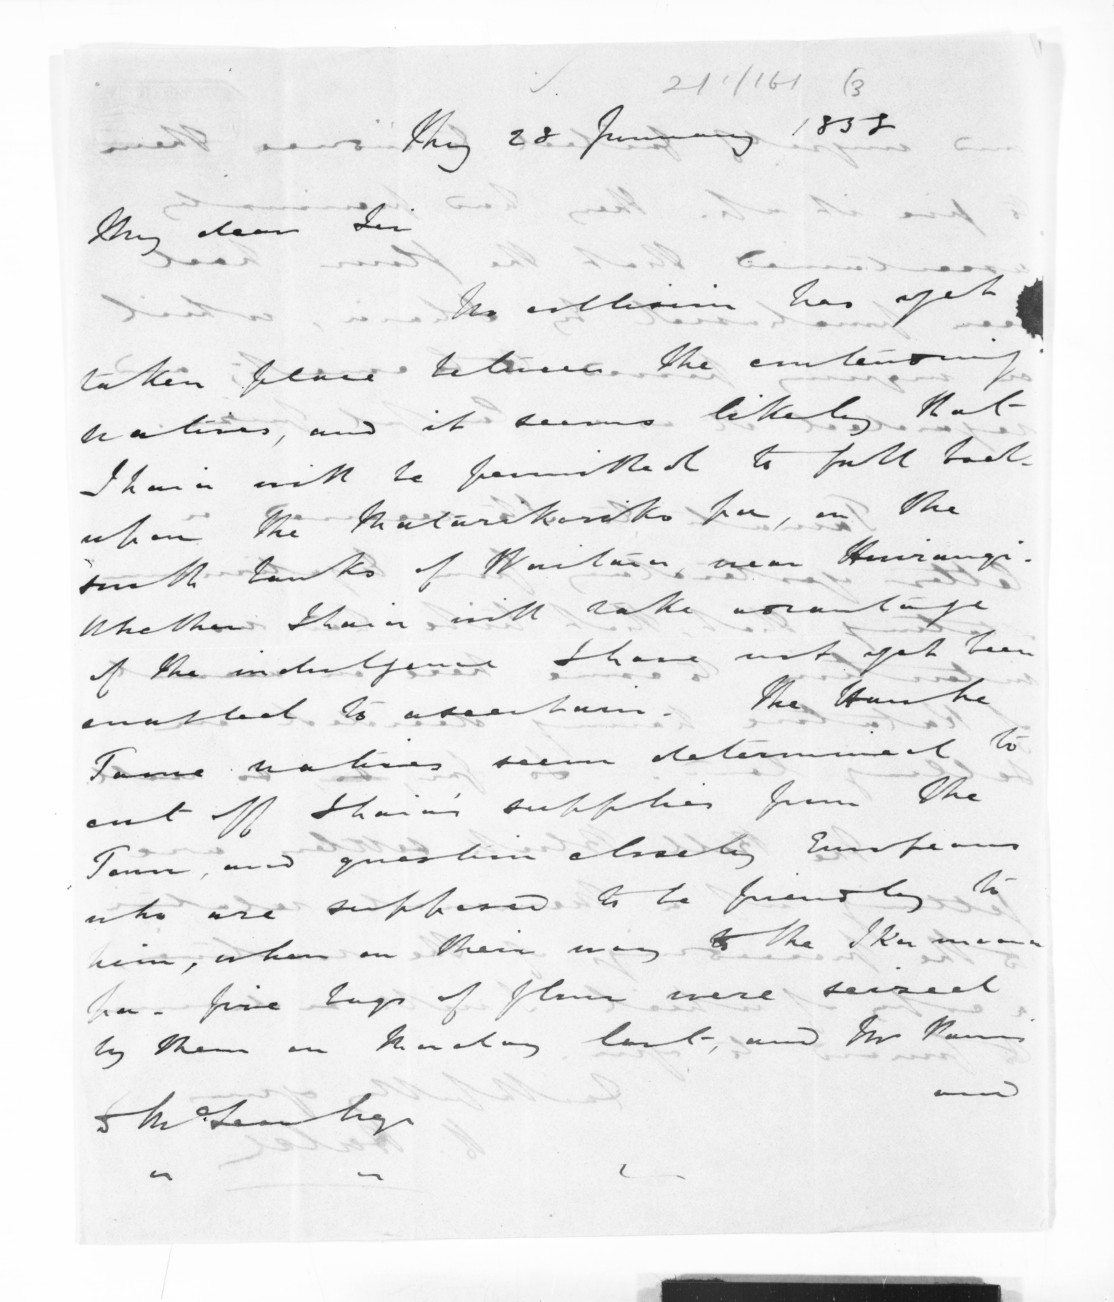 211/161 (3
28 January 1858
My dear Sir
No collision has yet
taken place between the contending
natives, and it seems likely that
Ihaia will be permitted to fall back
upon the Mataraikoriko pa, on the
south banks of Waitara, near Huirangi.
Whether Ihaia will take advantage
of the indulgence I have not yet been
enabled to ascertain. The
natives seem determined to
cut off Ihaia's supplies from the
Town, and question closely Europeans
who are supposed to be friendly to
him, when on their way to the Ika moana
pa. Five bags of flour were seized
by them on Monday last, and Mr Parris
and
D McLean Esqr
" "